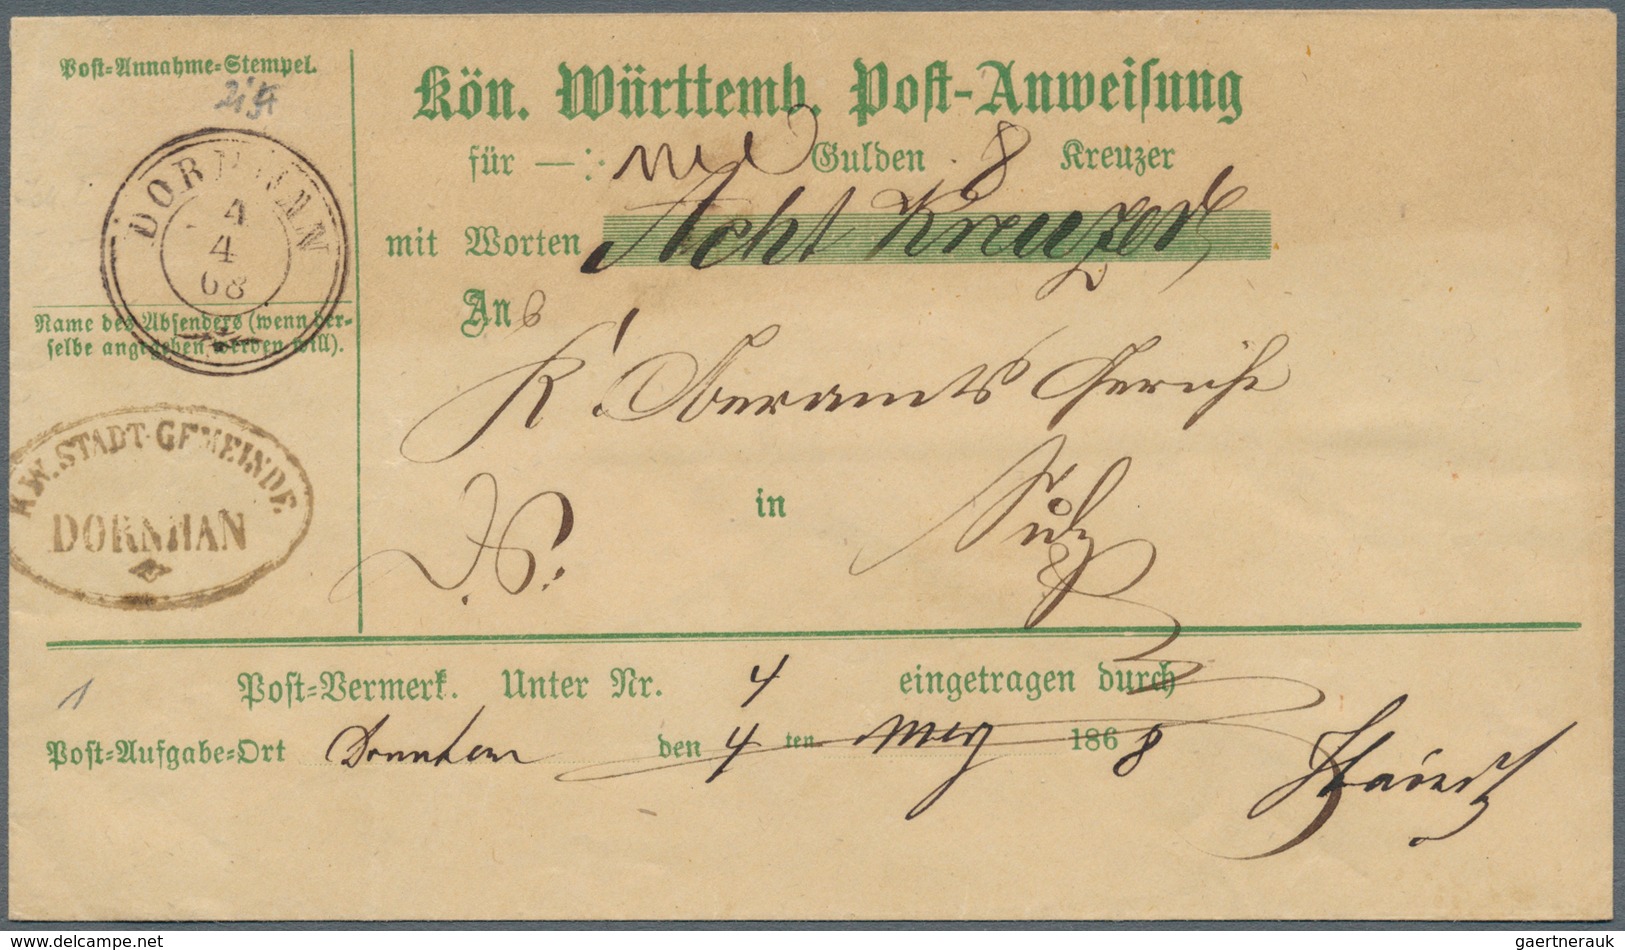 Post-Annahme-Stempel.
Kön. Württemb. Post-Anweisung
für —:. Gulden 8 Kreuzer
mit Worten Acht Kreuzer
DORNHAN
4
4
68
Name des Absenders (wenn der-
selbe angegeben werden will).
An
K. Oberamts Gericht
K.W. STADT-GEMEINDE.
DORNHAN
in Sulz
D. S.
Post-Vermerk. Unter Nr. 4 eingetragen durch
1
Post-Aufgabe-Ort Dornhan den 4 ten 1868
www.delcampe.net
gaertnerauk